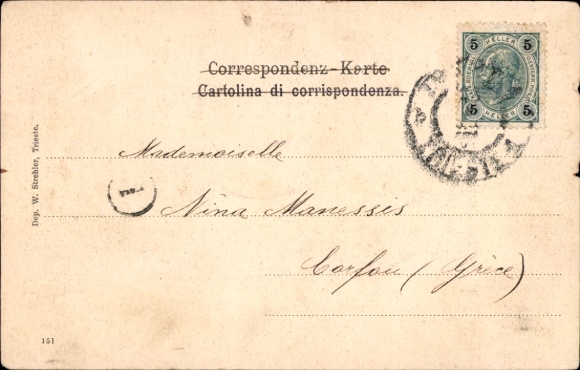 Correspondenz-Karte
Cartolina di corrispondenza.
5 HELLER 5
5 HELLER 5
Mademoiselle
Nina Manessis
Corfou (Grèce)
Dep. W. Strehler, Trieste.
151